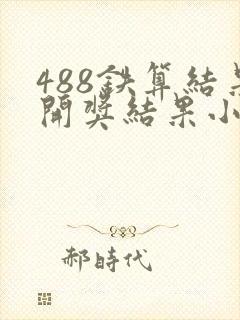 488鉄算結果
開奖結果小
郝時代